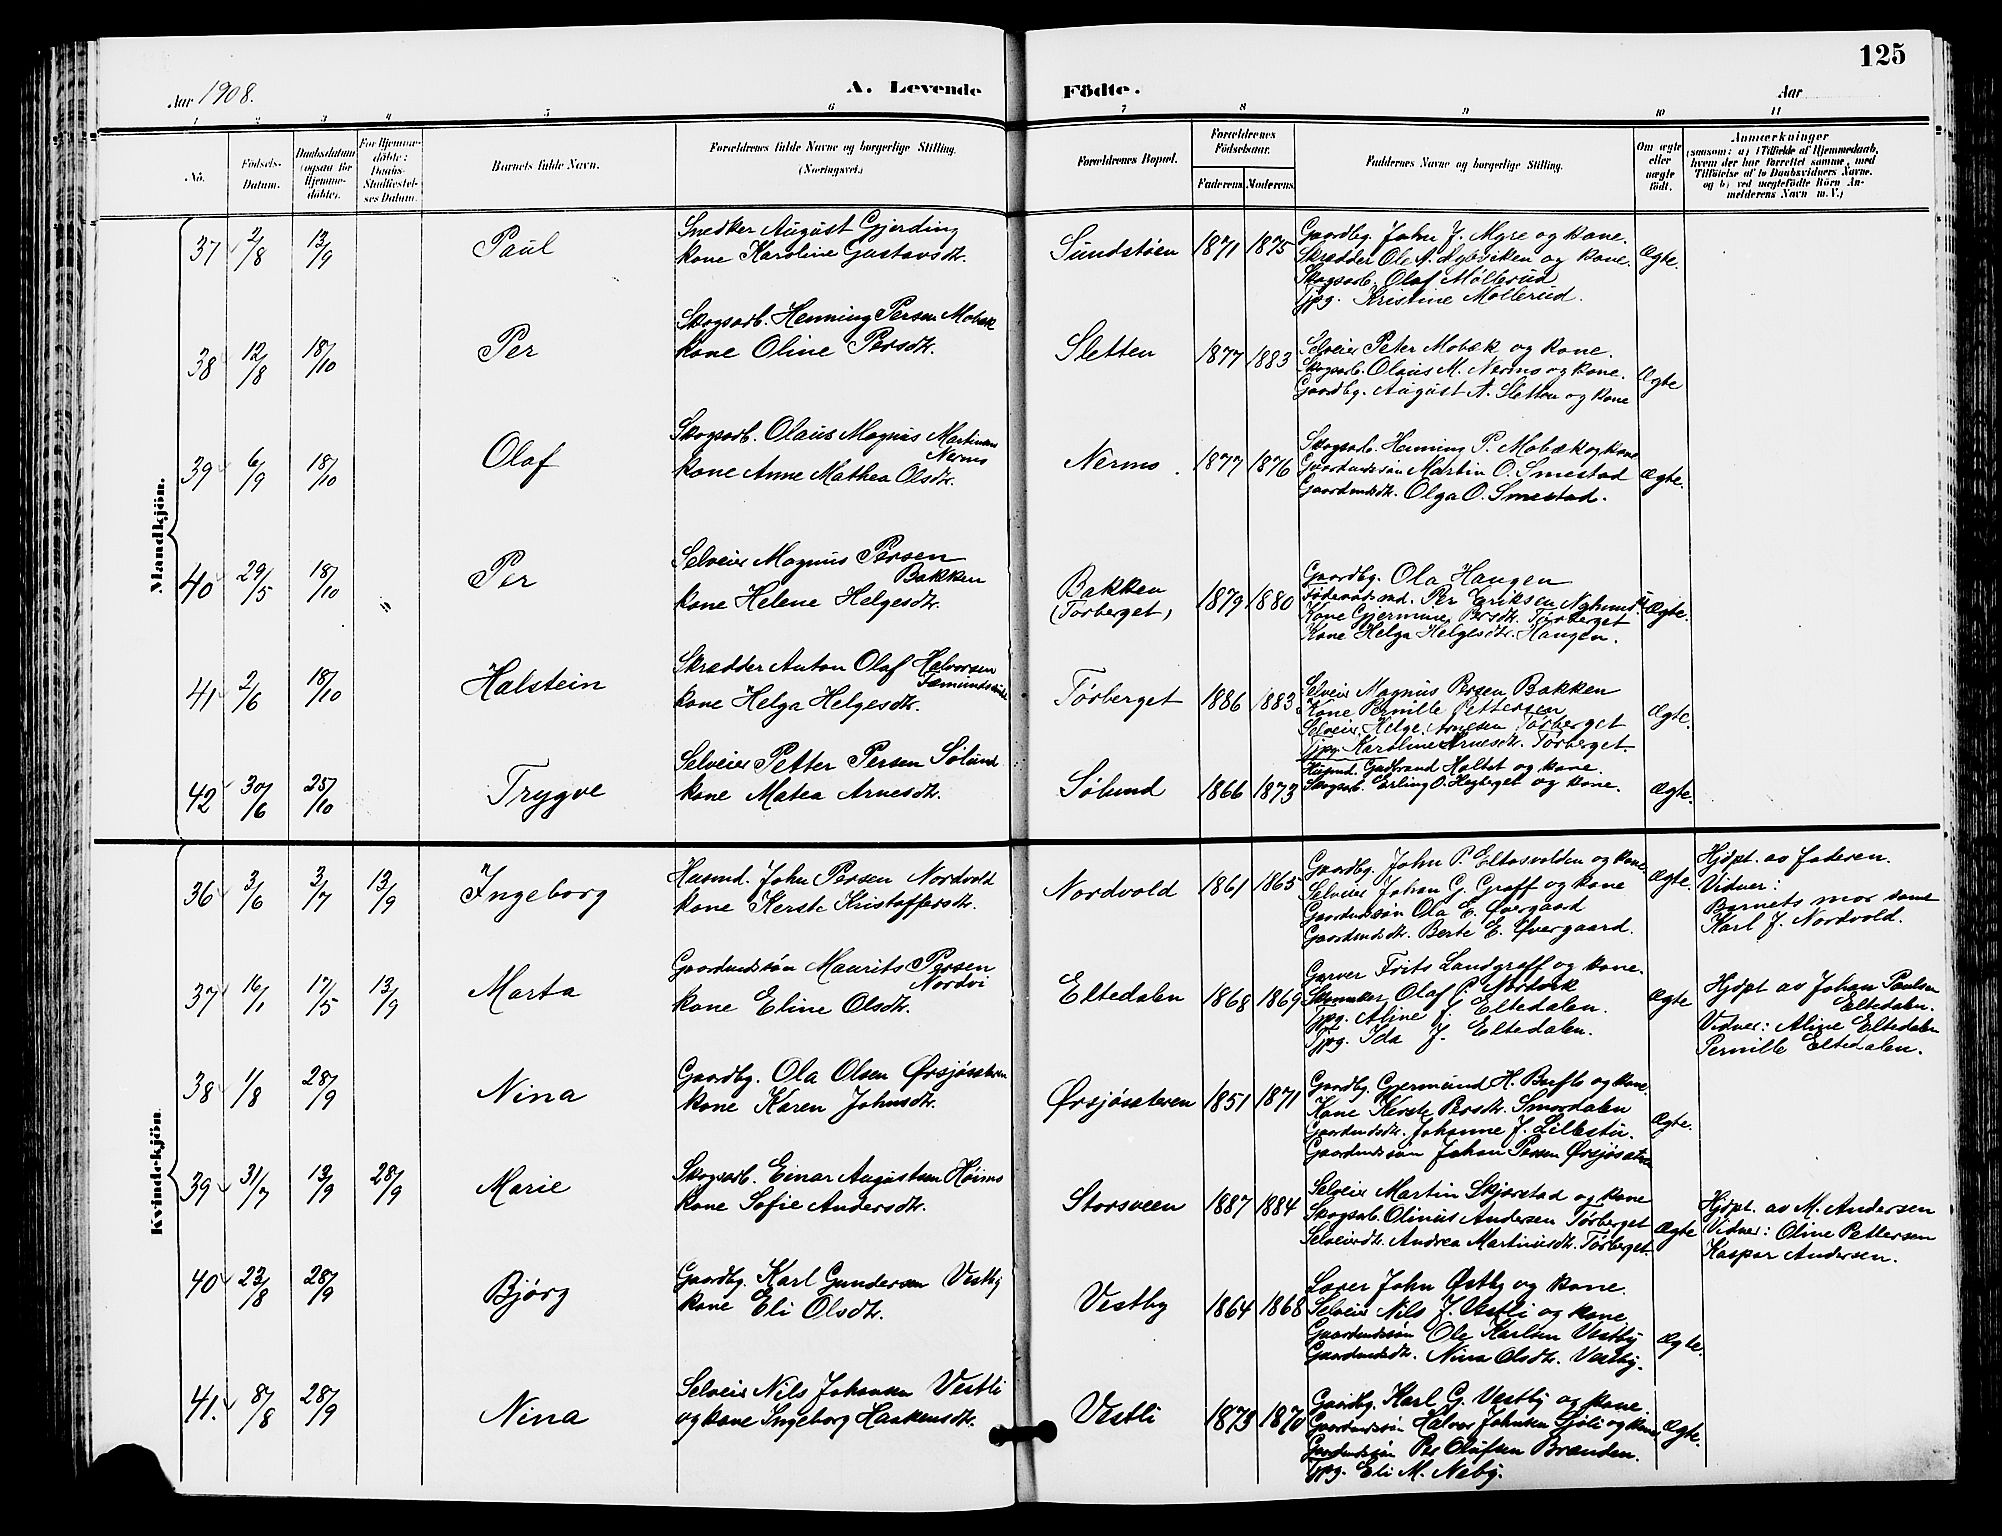 125
Aar 1908.
A. Levende Födte.
Aar
1 2 3 4 5 6 7 8 9 10 11
No.
Födsels-Datum.
Daabsdatum (ogsaa for Hjemme-döbte).
For Hjemme-döbte: Daabs-Stadfæstel-ses Datum.
Barnets fulde Navn.
Forældrenes fulde Navne og borgerlige Stilling.
(Næringsvei.)
Forældrenes Bopæl.
Forældrenes Födselsaar.
Faderens. Moderens.
Faddernes Navne og borgerlige Stilling.
Om ægte eller uægte födt.
Anmærkninger
(saasom: a) i Tilfælde af Hjemmedaab,
hvem der har forrettet samme, med
Tilföielse af to Daabsvidners Navne.
og b) ved uægtefödte Börn An-
melderens Navn m. V.)
Mandkjön.
37 2/8 13/9 Paul
Snedker August Gjerding
kone Karoline Gustavsdtr.
Sundstøen 1871 1875
Gaardbg. John J. Myre og kone.
Skrædder Ole A. og kone.
Skogsarb. Olaf Møllerud
Tjpg. Kristine Møllerud.
Ægte.
38 12/8 18/10 Per
Skogsarb. Henning Persen Mobæk
kone Oline Persdtr.
Sletten 1877 1883
Selveier Peter Mobæk og kone.
Skogsarb. Olaus M. Nermo og kone.
Gaardbg. August A. Sletten og kone
Ægte
39 6/9 18/10 Olaf
Skogsarb. Olaus Magnus Martinsen
Nermo
kone Anne Mathea Olsdtr.
Nermo. 1877 1876
Skogsarb. Henning P. Mobæk og kone
Gaardmdssøn Martin O. Smestad
Gaardmdsdtr. Olga O. Smestad.
Ægte.
40 29/5 18/10 " Per
Selveier Magnus Persen
Bakken
kone Helene Helgesdtr.
Bakken
(Tørberget) 1879 1880
Gaardbg. Ola Haugen
Føderaadsmd. Per Eriksen
Kone Gjermine Persdtr. Tørberget
Kone Helga Helgesdtr. Haugen.
Ægte.
41 2/6 18/10 Halstein
Skrædder Anton Olaf Halvorsen
kone Helga Helgesdtr.
Tørberget 1886 1883
Selveier Magnus Persen Bakken
Kone Pernille Pettersen
Selveier Helge Arnesen Tørberget
Tjpg. Karoline Arnesdtr. Tørberget.
Ægte.
42 30/6 25/10 Trygve
Selveier Petter Persen Sølund
kone Matea Arnesdtr.
Sølund 1866 1873
Husmd. Gudbrand Holtet og kone.
Skogsarb. Erling O. og kone.
Ægte.
Kvindekjön.
36 3/6 3/7 13/9 Ingeborg
Husmd. John Persen Nordvold
kone Kerste Kristoffersdtr.
Nordvold 1861 1865
Gaardbg. John P. Eltasvolden og kone.
Selveier Johan G. Graff og kone
Gaardmdssøn Ola E. Øvergaard
Gaardmdsdtr. Berte E. Øvergaard.
Ægte.
Hjdpt. av faderen.
Vidner:
Barnets mor samt
Karl J. Nordvold.
37 16/1 17/5 13/9 Marta
Gaardmdssøn Maurits Persen
Nordvi
kone Eline Olsdtr.
Eltedalen 1868 1869
Garver Frits Landgraff og kone.
Olaf P. Nordvik
Tjpg. Aline J. Eltedalen.
Tjpg. Ida J. Eltedalen.
Ægte
Hjdpt av Johan Paulsen
Eltedalen.
Vidner: Aline Eltedalen
Pernille Eltedalen.
38 1/8 28/9 Nina
Gaardbg. Ola Olsen Ørsjøsæteren
kone Karen Johnsdtr.
Ørsjøsæteren 1851 1871
Gaardbg. Gjermund H. og kone.
Kone Kerste Persdtr. Smordalen
Gaardmdsdtr. Johanne J. Lillestu.
Gaardmdssøn Johan Persen Ørsjøsætren
Ægte.
39 31/7 13/9 28/9 Marie
Skogsarb. Einar Augustsen Høimo
kone Sofie Andersdtr.
Storsveen 1887 1884
Selveier Martin Skjærstad og kone
Skogsarb. Olinus Andersen Tørberget
Selveierdtr. Andrea Martinusdtr. Tørberget.
Ægte
Hjdpt. av M. Andersen
Vidner: Oline Pettersen
Kaspar Andersen.
40 23/8 28/9 Bjørg
Gaardbg. Karl Gundersen Vestby
kone Eli Olsdtr.
Vestby 1864 1868
Laser John Østby og kone.
Selveier Nils J. Vestli og kone.
Gaardmdssøn Ole Karlsen Vestby
Gaardmdsdtr. Nina Olsdtr. Vestby.
Ægte.
41. 8/8 28/9 Nina
Selveier Nils Johansen Vestli
og kone Ingeborg Haakensdtr.
Vestli 1873 1870
Gaardbg. Karl G. Vestby og kone.
Gaardmdssøn Halvor Johnsen Sjøli og kone
Gaardmdssøn Per Olufsen Brænden.
Tjpg. Eli M. Neby.
Ægte.